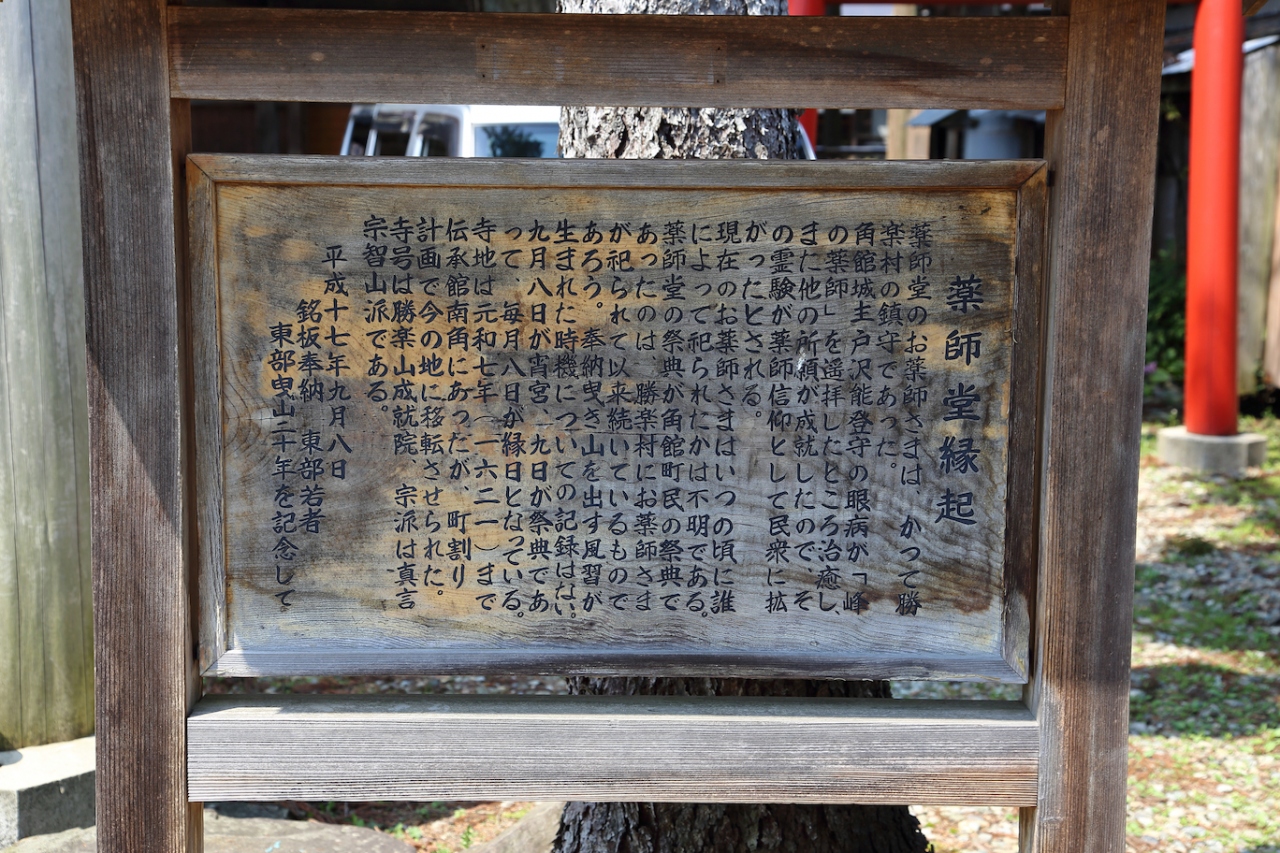 薬師堂縁起
薬師堂のお薬師さまは、かつて勝
楽村の鎮守であった。
角館城主戸沢能登守の眼病が「峰
の薬師」を遥拝したところ治癒し、
また他の所願が成就したので、そ
の霊験が薬師信仰として民衆に拡
がったとされる。
現在のお薬師さまはいつの頃に誰
によって祀られたかは不明である。
薬師堂の祭典が角館町民の祭典で
あったのは、勝楽村にお薬師さま
が祀られて以来続いているもので
あろう。奉納曳き山を出す風習が
生まれた時機についての記録はない。
九月八日が宵宮、九日が祭典であ
って、毎月八日が縁日となっている。
寺地は元和七年（一六二一）まで
伝承館南角にあったが、町割り
計画で今の地に移転させられた。
寺号は勝楽山成就院、宗派は真言
宗智山派である。
平成十七年九月八日
銘板奉納　東部若者
東部曳山二十年を記念して